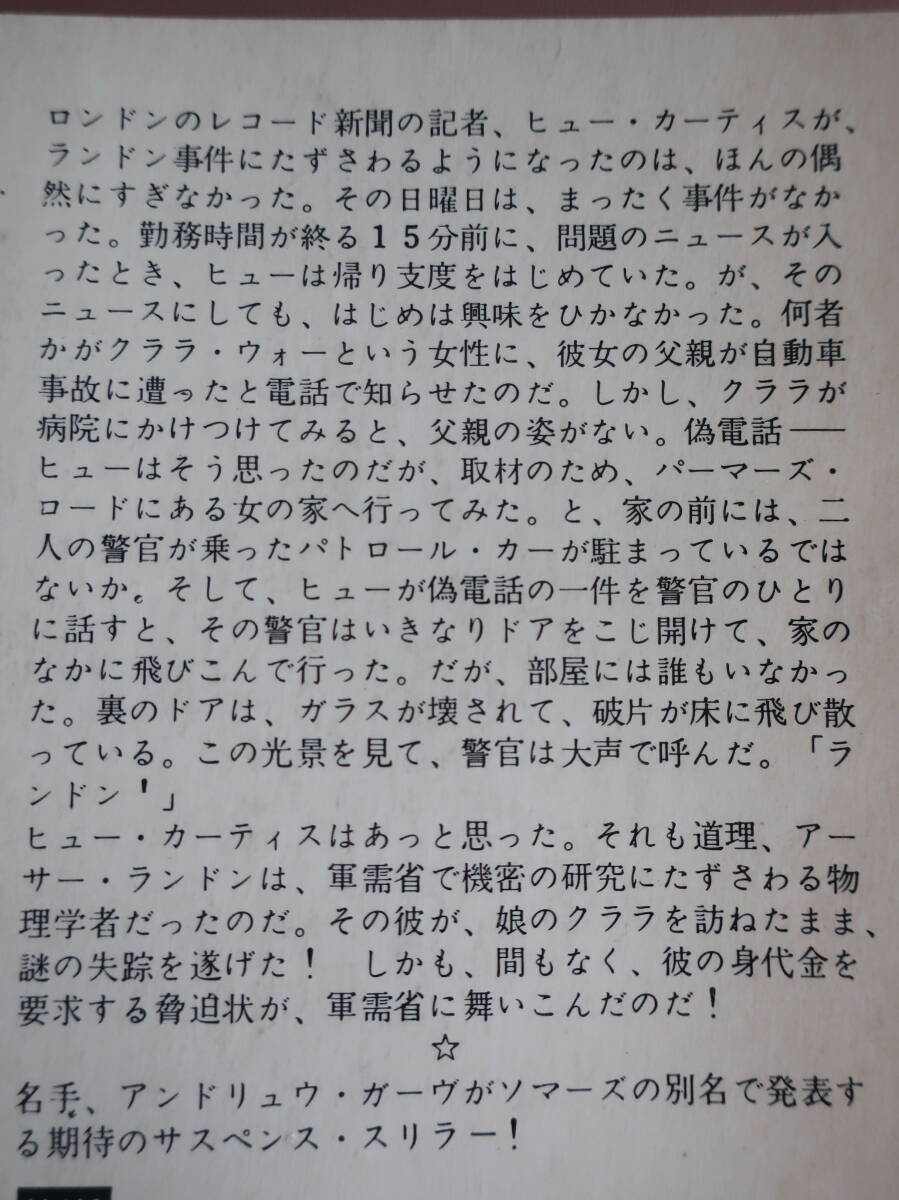 ロンドンのレコード新聞の記者、ヒュー・カーティスが、
ランドン事件にたずさわるようになったのは、ほんの偶
然にすぎなかった。その日曜日は、まったく事件がなか
った。勤務時間が終る15分前に、問題のニュースが入
ったとき、ヒューは帰り支度をはじめていた。が、その
ニュースにしても、はじめは興味をひかなかった。何者
かがクララ・ウォーという女性に、彼女の父親が自動車
事故に遭ったと電話で知らせたのだ。しかし、クララが
病院にかけつけてみると、父親の姿がない。偽電話――
ヒューはそう思ったのだが、取材のため、パーマーズ・
ロードにある女の家へ行ってみた。と、家の前には、二
人の警官が乗ったパトロール・カーが駐まっているでは
ないか。そして、ヒューが偽電話の一件を警官のひとり
に話すと、その警官はいきなりドアをこじ開けて、家の
なかに飛びこんで行った。だが、部屋には誰もいなかっ
た。裏のドアは、ガラスが壊されて、破片が床に飛び散
っている。この光景を見て、警官は大声で呼んだ。「ラ
ンドン！」
ヒュー・カーティスはあっと思った。それも道理、アー
サー・ランドンは、軍需省で機密の研究にたずさわる物
理学者だったのだ。その彼が、娘のクララを訪ねたまま、
謎の失踪を遂げた！　しかも、間もなく、彼の身代金を
要求する脅迫状が、軍需省に舞いこんだのだ！
☆
名手、アンドリュウ・ガーヴがソマーズの別名で発表す
る期待のサスペンス・スリラー！